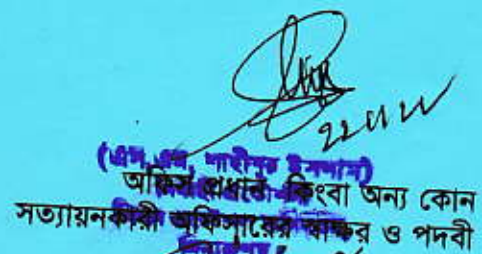 ২২/১১/২১
(এস, এম, শাহীনুর ইসলাম)
অফিস প্রধান কিংবা অন্য কোন
সত্যায়নকারী অফিসারের স্বাক্ষর ও পদবী